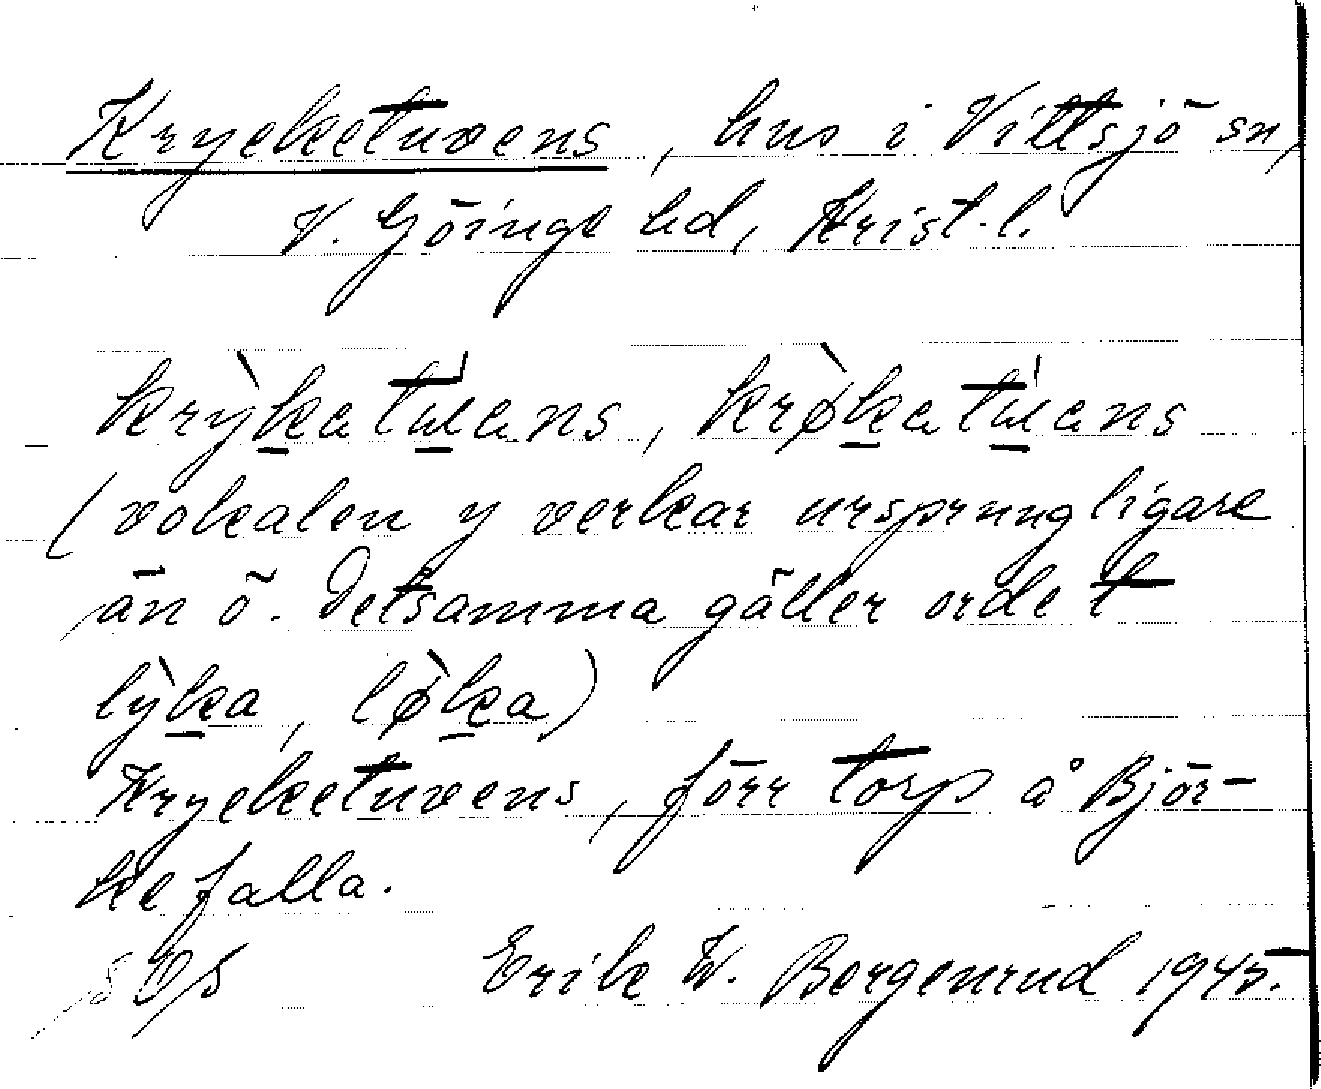 Krycketuvens, hus i Vittsjö sn,
V. Göinge hd, Krist. l.
krỳkatu̲ans, krø̀katu̲ans
(vokalen y verkar ursprungligare
än ö. Detsamma gäller ordet
lỳka, lø̀ka)
Krycketuvens, förr torp å Björ-
kefalla.
Erik W. Borgenrud 1945.